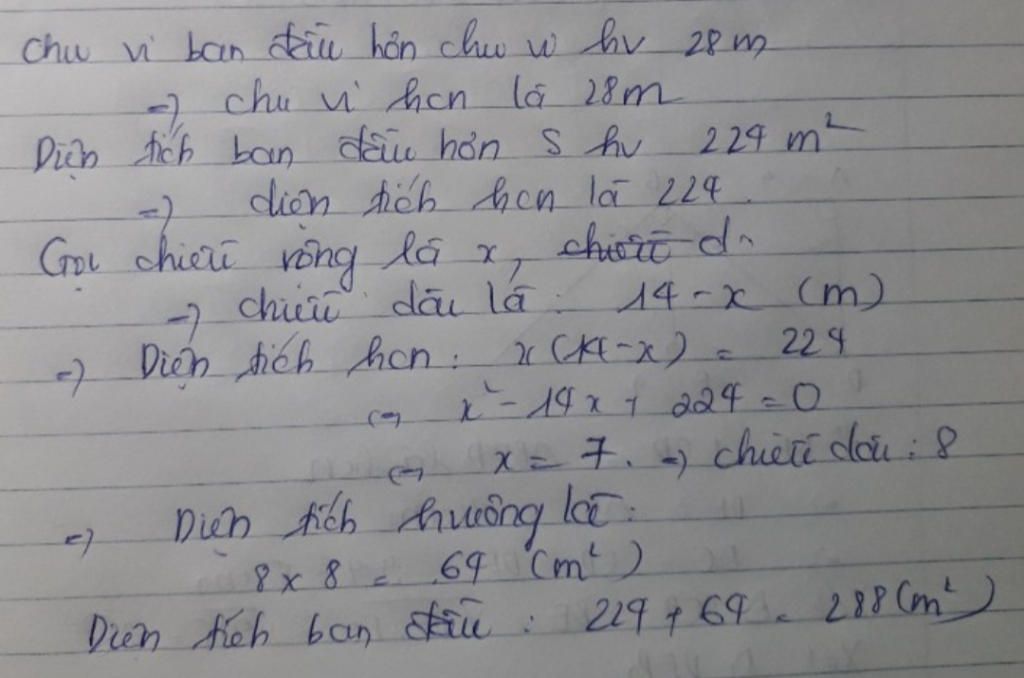 Chu vi ban đầu hơn chu vi hv 28m
=> chu vi hcn là 28m
Diện tích ban đầu hơn S hv 224 m²
=> diện tích hcn là 224.
Gọi chiều rộng là x, chiều d
=> chiều dài là : 14 - x (m)
=> Diện tích hcn : x(14-x) = 224
<=> x² - 14x + 224 = 0
<=> x = 7. => chiều dài : 8
=> Diện tích hương là :
8 x 8 = 64 (m²)
Diện tích ban đầu : 224 + 64 = 288(m²)